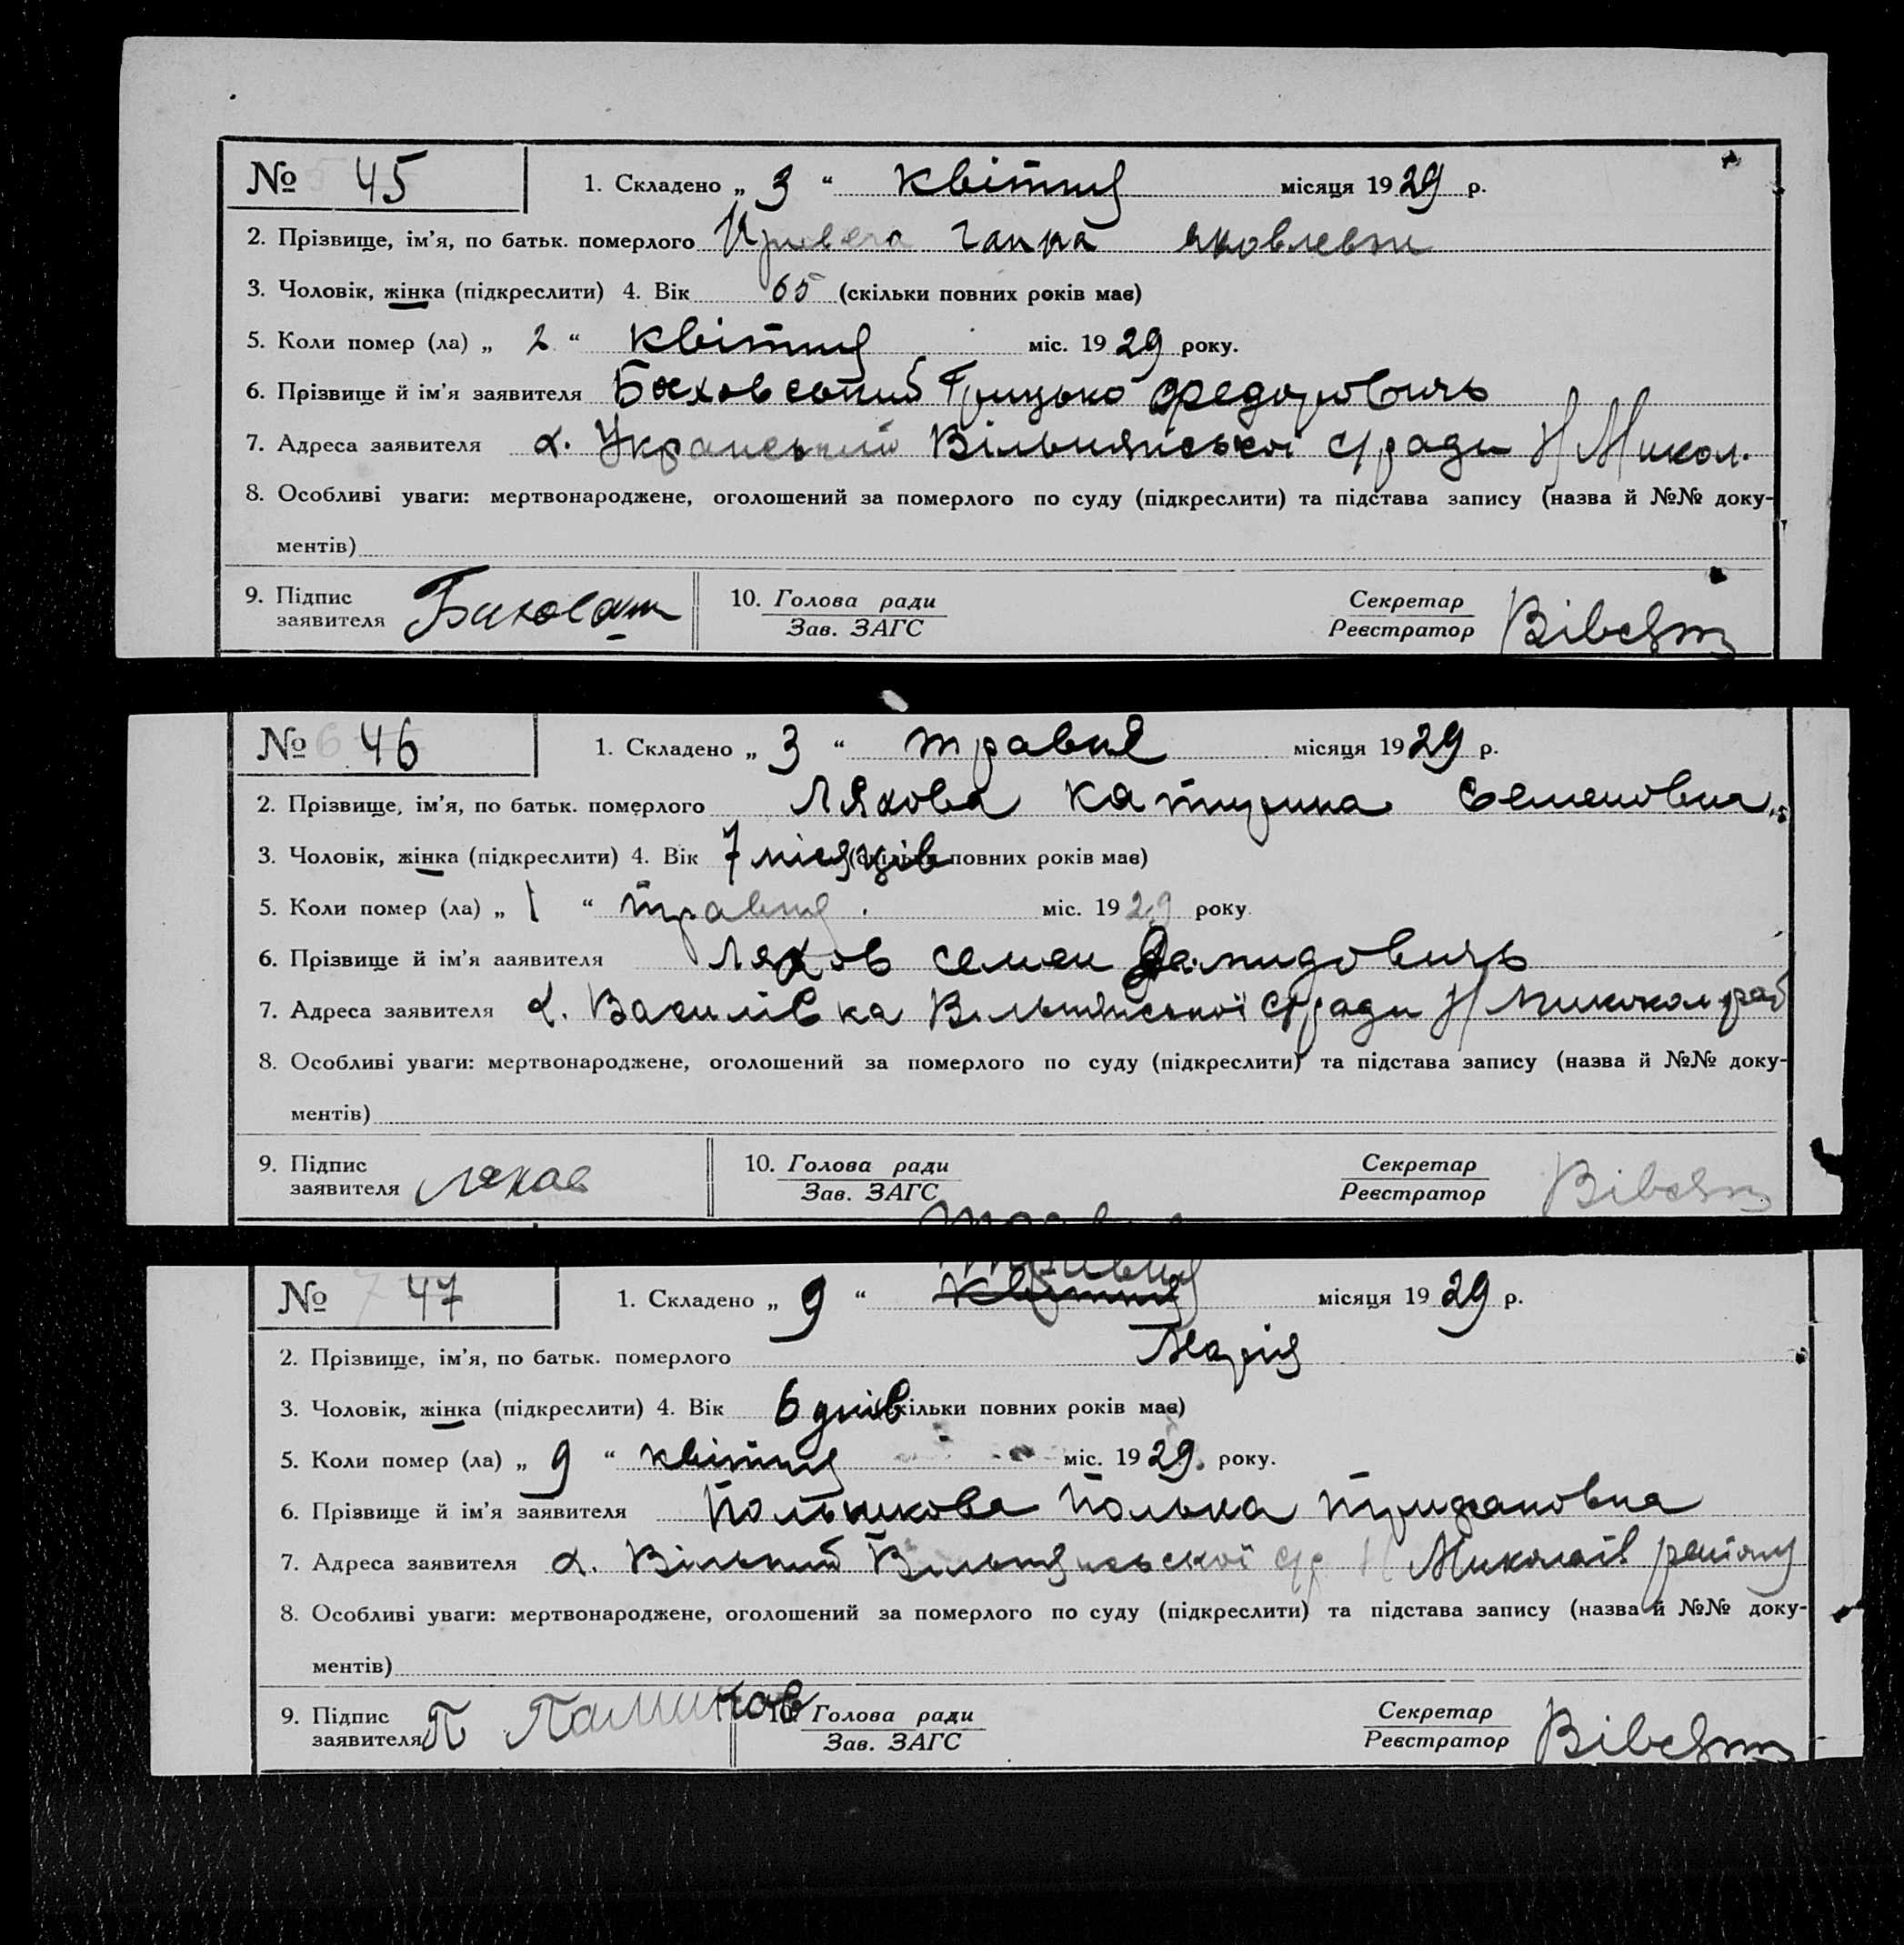 № 45 1. Складено „ 3 “ квітня місяця 1929 р.
2. Прізвище, ім’я, по батьк. померлого Ганна Яковлевна
3. Чоловік, жінка (підкреслити) 4. Вік 65 (скільки повних років має)
5. Коли помер (ла) „ 2 “ квітня міс. 1929 року.
6. Прізвище й ім’я заявителя Грицько Федоровичь
7. Адреса заявителя х. Український Вільнянської с/ради Н Микол.
8. Особливі уваги: мертвонароджене, оголошений за померлого по суду (підкреслити) та підстава запису (назва й №№ доку-
ментів)
9. Підпис заявителя
10. Голова ради
Зав. ЗАГС
Секретар
Реєстратор
№ 46 1. Складено „ 3 “ травня місяця 1929 р.
2. Прізвище, ім’я, по батьк. померлого Ляхова Катирина Семеновна
3. Чоловік, жінка (підкреслити) 4. Вік 7 місяців (скільки повних років має)
5. Коли помер (ла) „ 1 “ травня міс. 1929 року.
6. Прізвище й ім’я заявителя Ляхов Семен
7. Адреса заявителя х. Василівка Вільнянської с/ради Н
8. Особливі уваги: мертвонароджене, оголошений за померлого по суду (підкреслити) та підстава запису (назва й №№ доку-
ментів)
9. Підпис заявителя Ляхов
10. Голова ради
Зав. ЗАГС
Секретар
Реєстратор
травня
№ 47 1. Складено „ 9 “ квітня місяця 1929 р.
2. Прізвище, ім’я, по батьк. померлого Марія
3. Чоловік, жінка (підкреслити) 4. Вік 6 днів (скільки повних років має)
5. Коли помер (ла) „ 9 “ квітня міс. 1929 року.
6. Прізвище й ім’я заявителя
7. Адреса заявителя х. Вільний Вільнянської с/р Н Миколаїв району
8. Особливі уваги: мертвонароджене, оголошений за померлого по суду (підкреслити) та підстава запису (назва й №№ доку-
ментів)
9. Підпис заявителя П
10. Голова ради
Зав. ЗАГС
Секретар
Реєстратор